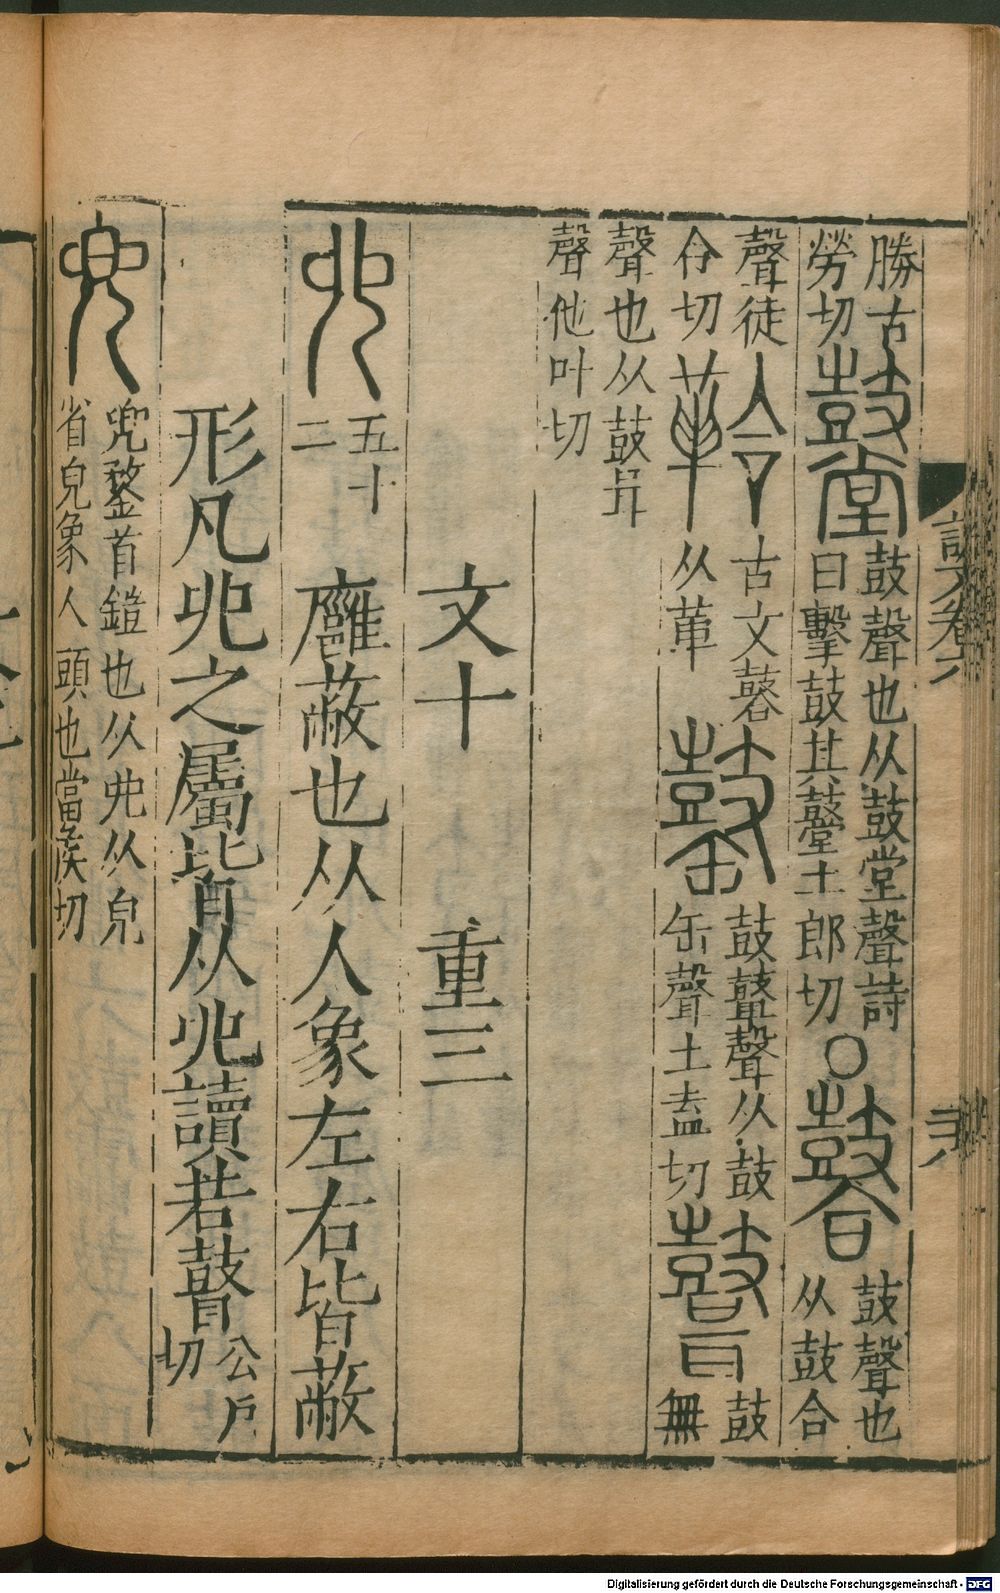 勝古
勞切
鼞
鼓聲也从鼓堂聲詩
曰擊鼓其鼞土郎切
〇
鼛
鼓聲也
从鼓合
聲徒
合切
古文鼛
从革
鼓鼙聲从鼓
缶聲土盍切
鼓無
聲也从鼓咠
聲他叶切
文十 重三
𠑹
五十
二
廱蔽也从人象左右皆蔽
形凡𠑹之屬皆从𠑹讀若瞽
公戶
切
兜
兜鍪首鎧也从𠑹从皃
省皃象人頭也當矦切
說文卷六
Digitalisierung gefördert durch die Deutsche Forschungsgemeinschaft - DFG